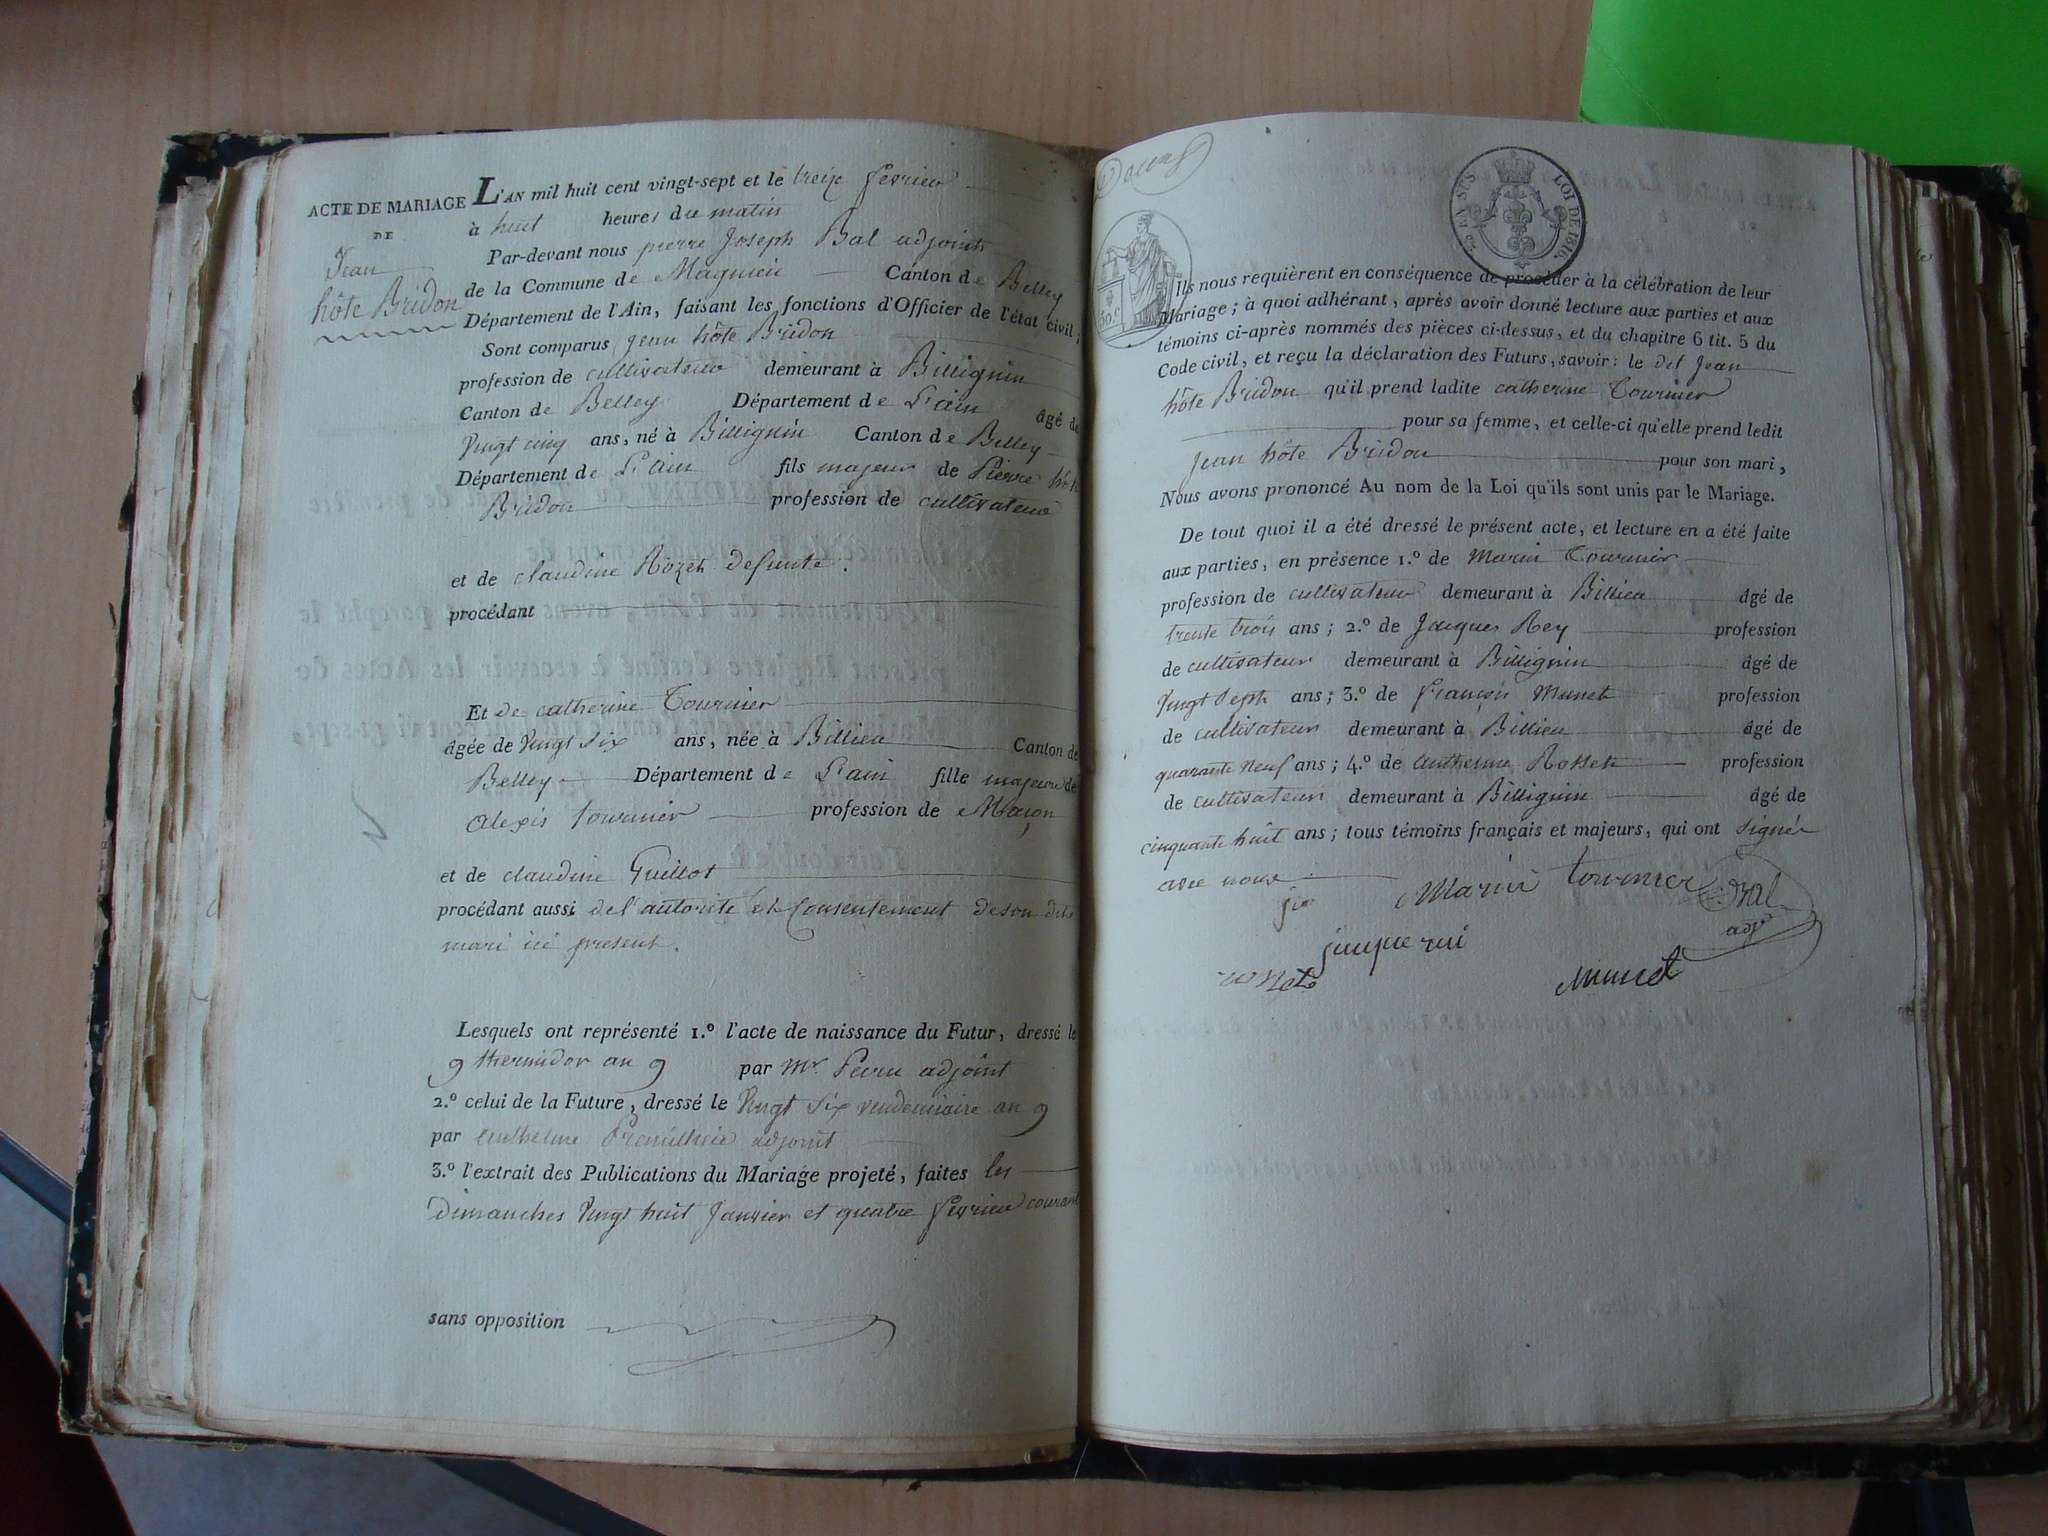 ACTE DE MARIAGE
DE
Jean
hôte Bridon
L'AN mil huit cent vingt-sept et le treize fevrier
à huit heures du matin
Par-devant nous pierre Joseph Bal adjoint
de la Commune de Magnieu Canton de Belley
Département de l'Ain, faisant les fonctions d'Officier de l'état civil;
Sont comparus jean hôte Bridon
profession de cultivateur demeurant à Billignin
Canton de Belley Département de L'ain âgé de
Vingt cinq ans, né à Billignin Canton de Belley
Département de L'ain fils majeur de Pierre hôte
Bridon profession de cultivateur
et de claudine Rozet defunte.
procédant
Et de catherine Tournier
âgée de Vingt Six ans, née à Billieu Canton de
Belley Département de L'ain fille majeure de
alexis tournier profession de Maçon
et de claudine Guillot
procédant aussi de l'autorité et Consentement de son dit
mari ici present.
Lesquels ont représenté 1.º l'acte de naissance du Futur, dressé le
9 thermidor an 9 par Mr. adjoint
2.º celui de la Future, dressé le Vingt Six vendemiaire an 9
par anthelme adjoint
3.º l'extrait des Publications du Mariage projeté, faites les
dimanches Vingt huit Janvier et quatre fevrier courant
sans opposition
LOI DE 1816.
50 c
Ils nous requièrent en conséquence de procéder à la célébration de leur
Mariage; à quoi adhérant, après avoir donné lecture aux parties et aux
témoins ci-après nommés des pièces ci-dessus, et du chapitre 6 tit. 5 du
Code civil, et reçu la déclaration des Futurs, savoir: le dit Jean
hôte Bridon qu'il prend ladite catherine Tournier
pour sa femme, et celle-ci qu'elle prend ledit
jean hôte Bridon pour son mari,
Nous avons prononcé Au nom de la Loi qu'ils sont unis par le Mariage.
De tout quoi il a été dressé le présent acte, et lecture en a été faite
aux parties, en présence 1.º de Marin Tournier
profession de cultivateur demeurant à Billieu âgé de
trente trois ans; 2.º de Jacques Rey profession
de cultivateur demeurant à Billignin âgé de
Vingt Sept ans; 3.º de françois Munet profession
de cultivateur demeurant à Billieu âgé de
quarante neuf ans; 4.º de anthelme Rosset profession
de cultivateur demeurant à Billignin âgé de
cinquante huit ans; tous témoins français et majeurs, qui ont signé
avec nous
Marin tournier Bal
adjt
munet